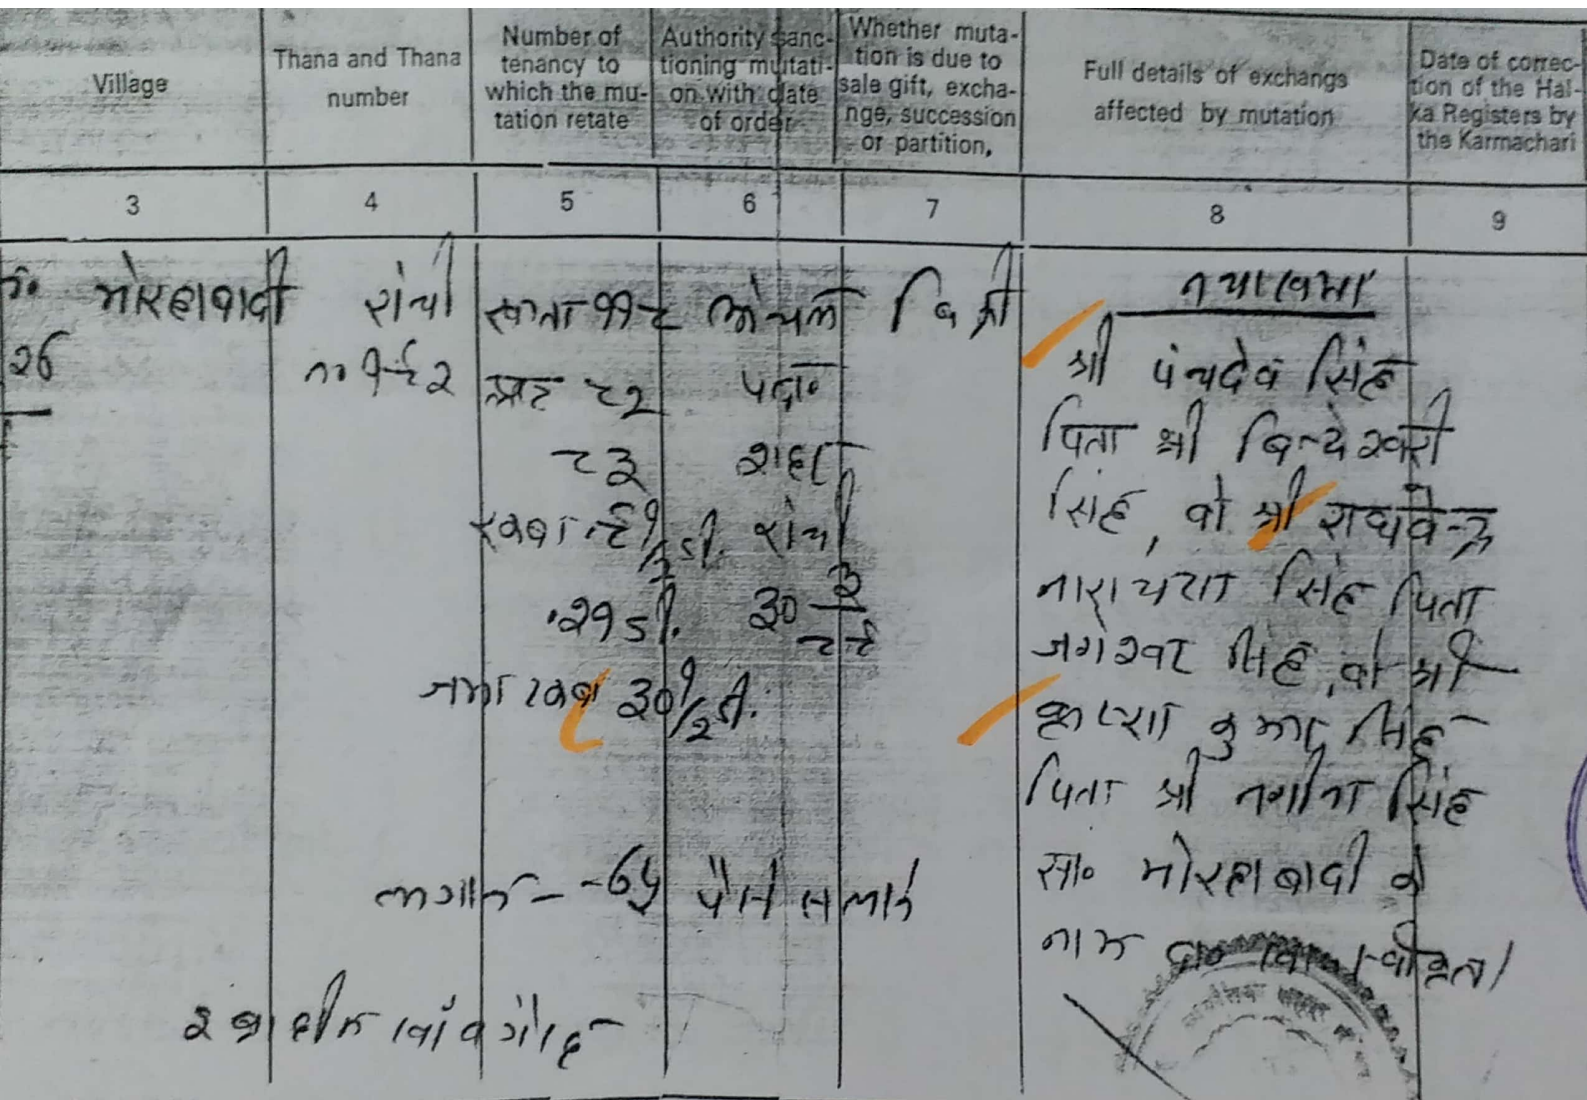 Village
Thana and Thana number
Number of tenancy to which the mu-tation retate
Authority sanc-tioning mutati-on with date of order
Whether muta-tion is due to sale gift, excha-nge, succession or partition,
Full details of exchangs affected by mutation
Date of correc-tion of the Hal-ka Registers by the Karmachari
3 4 5 6 7 8 9
मोरहाबादी
राँची
न० १९२
खाता ११८
प्लाट ८२
८३
.२१ डी.
३०१/२ डी.
लगान - -६५ पैसे सलाने
अंचल
पदा०
शहर
राँची
बिक्री
श्री पंचदेव सिंह
पिता श्री बिन्देश्वरी
सिंह, वो श्री राघवेन्द्र
नारायण सिंह पिता
जगेश्वर सिंह, वो श्री
कृष्णा कुमार सिंह
पिता श्री नगीना सिंह
सा० मोरहाबादी के
नाम दा०